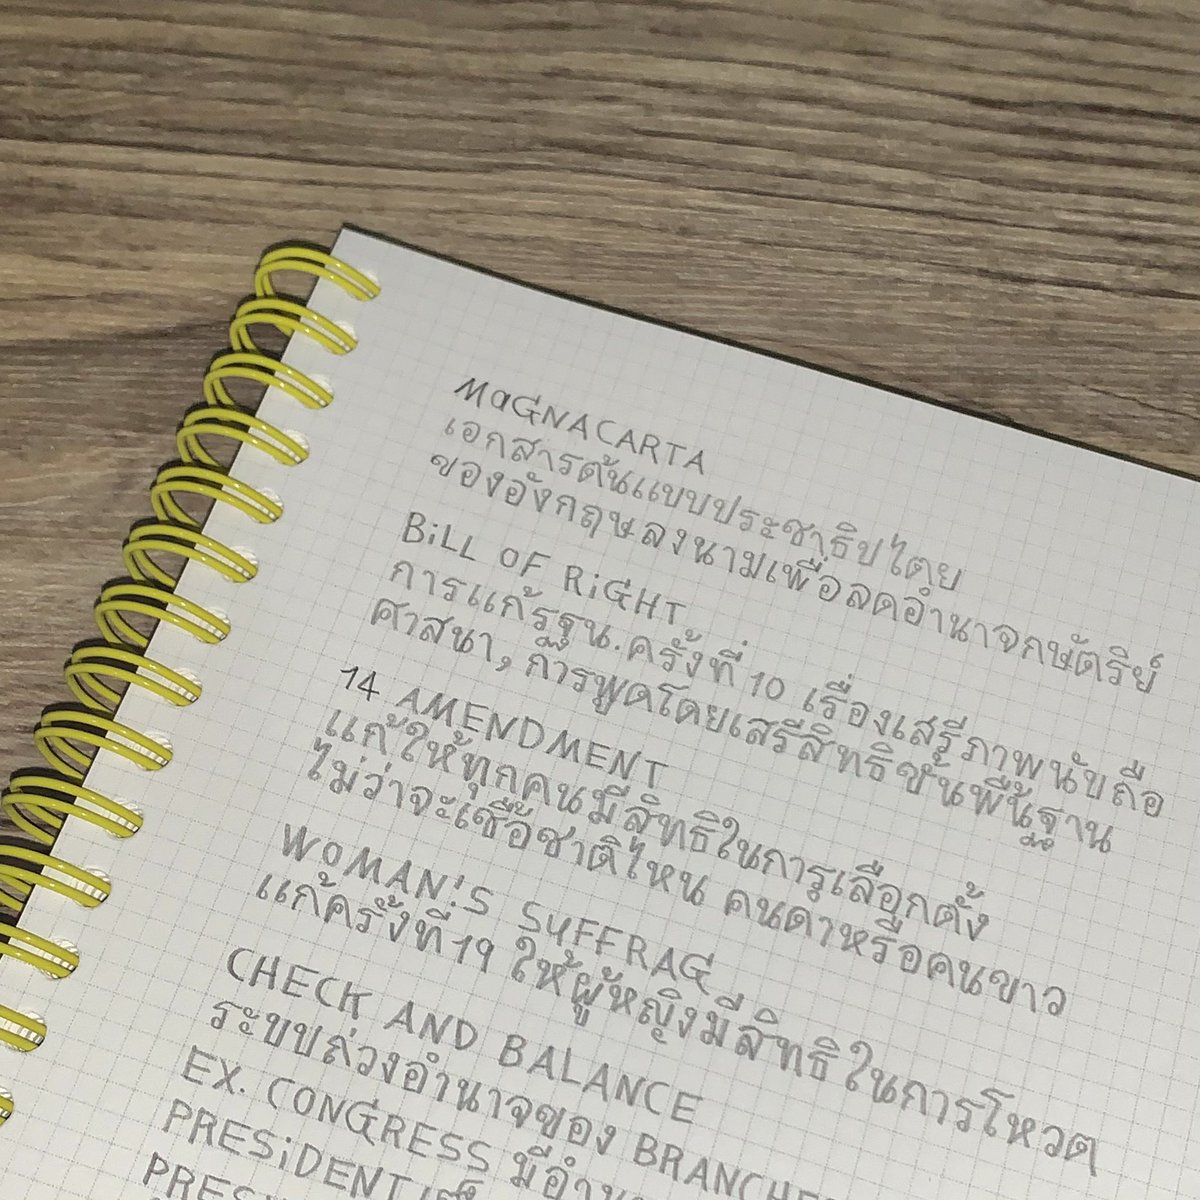 MaGNACARTA
เอกสารต้นแบบประชาธิปไตย
ของอังกฤษลงนามเพื่อลดอำนาจกษัตริย์
BiLL OF RiGHT
การแก้รฐน.ครั้งที่ 10 เรื่องเสรีภาพนับถือ
ศาสนา, การพูดโดยเสรีสิทธิขั้นพื้นฐาน
14 AMENDMENT
แก้ให้ทุกคนมีสิทธิในการเลือกตั้ง
ไม่ว่าจะเชื้อชาติไหน คนดำหรือคนขาว
WOMAN'S SUFFRAG
แก้ครั้งที่ 19 ให้ผู้หญิงมีสิทธิในการโหวต
CHECK AND BALANCE
ระบบถ่วงอำนาจของ
EX. CONGRESS
PRESiDENT